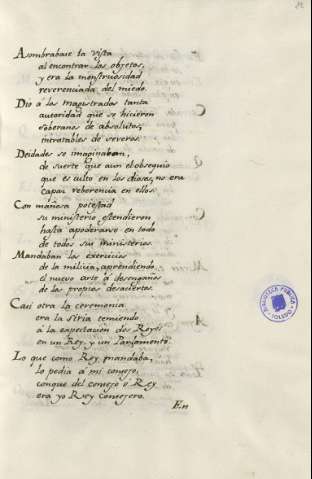 Asombrabase la vista
al encontrar los objetos,
y era la monstruosidad
reverenciada del miedo.
Dio á los magistrados tanta
autoridad que se hicieron
soberanos de absolutos,
intratables de severos.
Deidades se imaginaban,
de suerte que aun el obsequio
que es culto en los dioses, no era
capaz reberencia en ellos.
Con mañosa potestad
su ministerio estendieron
hasta apoderarse en todo
de todos sus ministerios.
Mandaban los exercicios
de la milicia, aprendiendo
el nuevo arte á desengaños
de los propios desaciertos.
Casi otra la ceremonia
era la Siria temiendo
á la expectacion dos Reyes
en un Rey, y un Parlamento.
Lo que como Rey mandaba,
lo pedia á mi consejo,
conque del consejo ó Rey
era yo Rey consejero.
En
BIBLIOTECA PUBLICA
TOLEDO